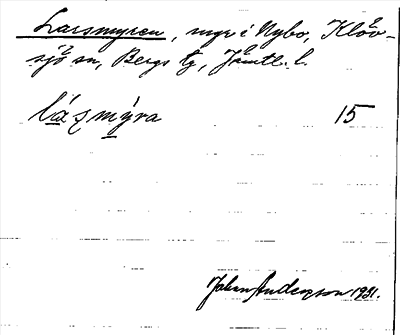 Larsmyren, myr i Nybo, Klöv-
sjö sn, Bergs tg, Jämtl. l.
lásmýra 15
Johan Anderson 1931.